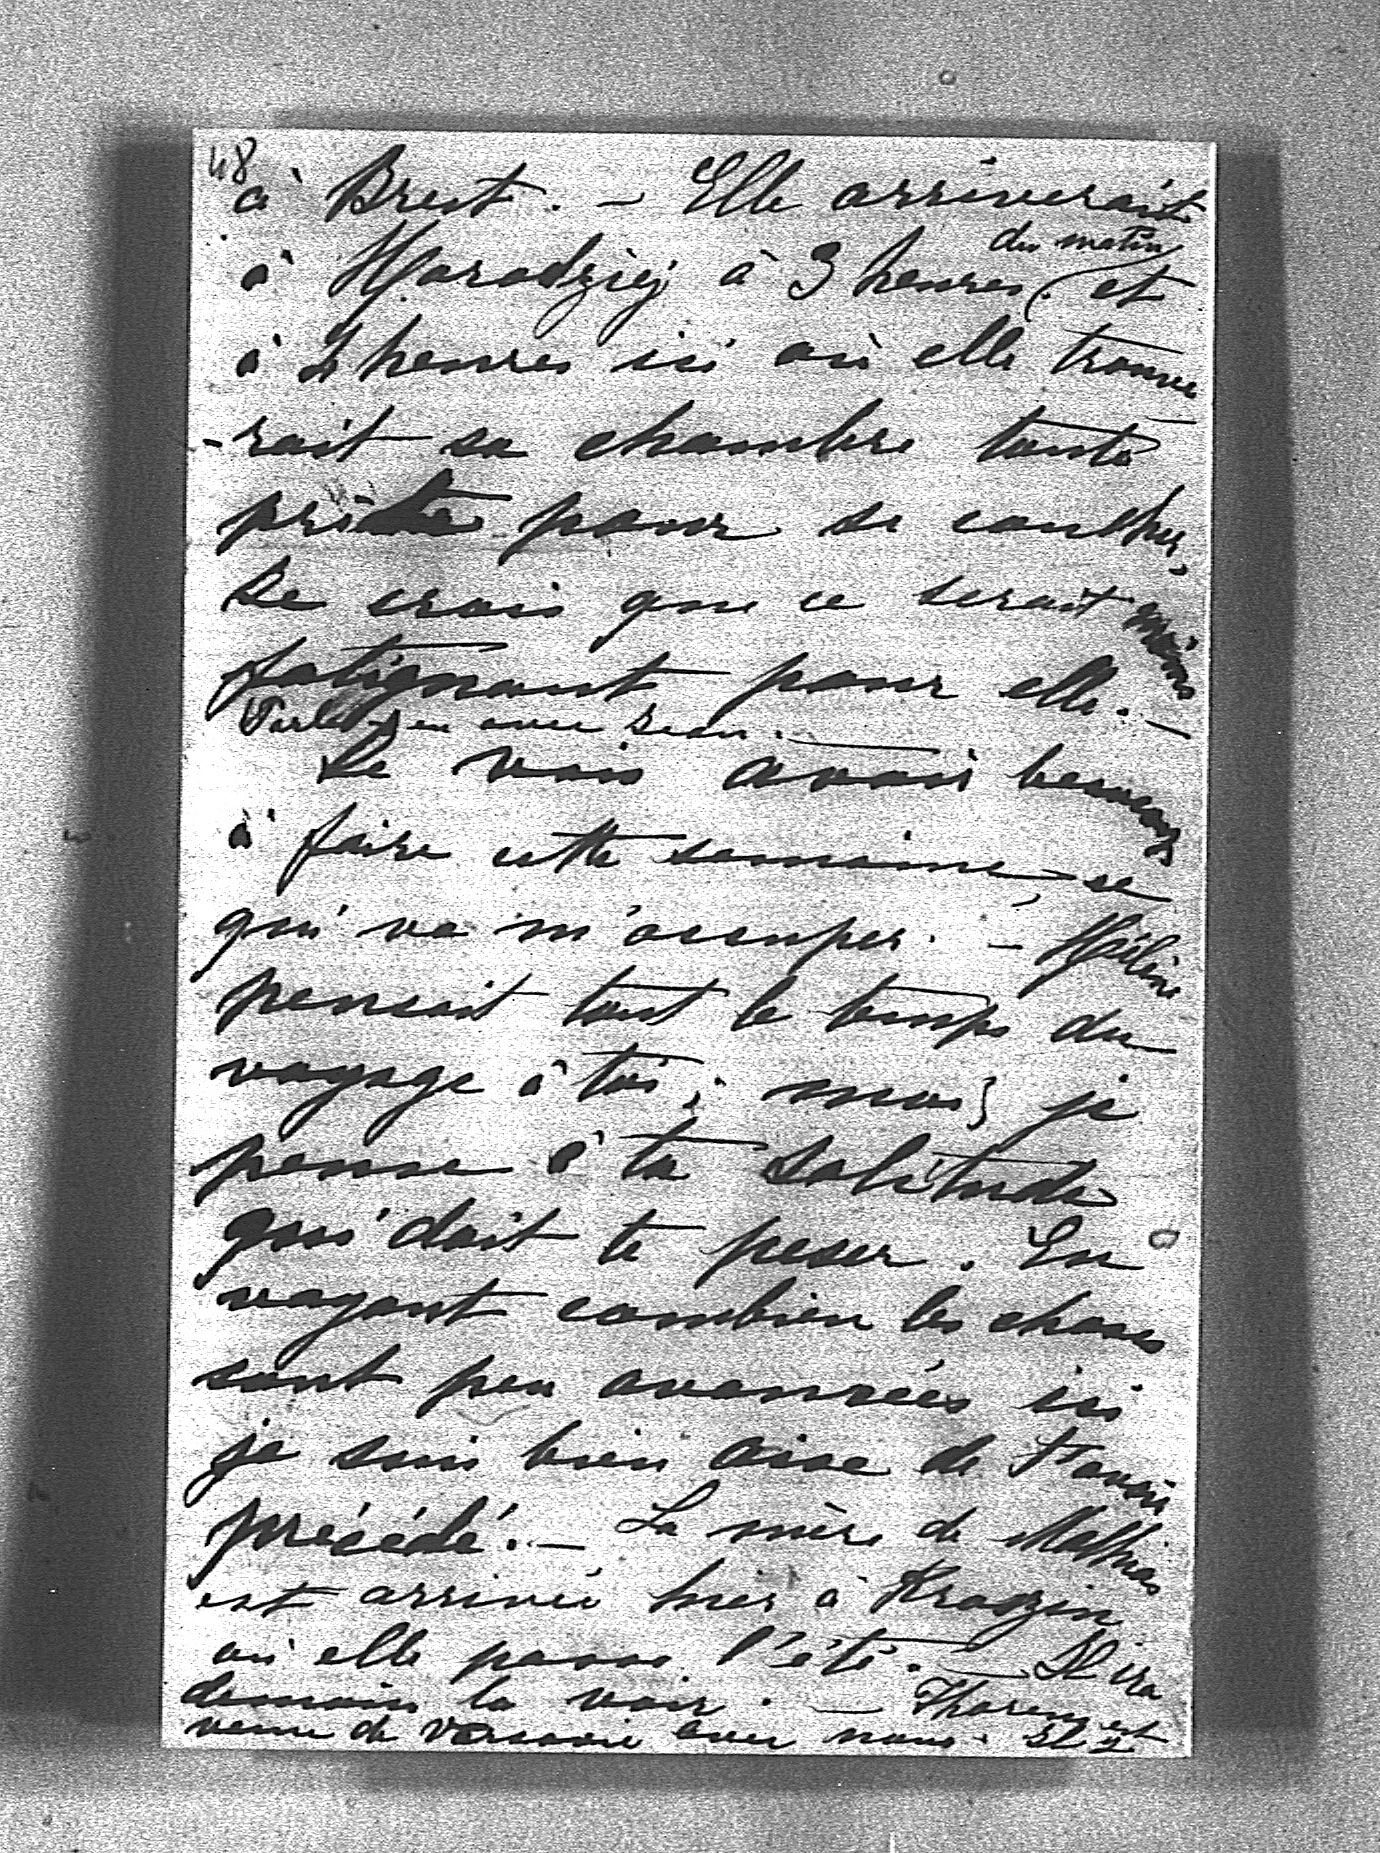 48
à Brest. — Elle arriverait
du matin
à Horodziej à 3 heures et
à 2 heures ici où elle trouve
-rait sa chambre toute
prête pour se coucher,
Je crois que ce serait moins
fatignant pour elle. —
en avec Jean. —
Je vais avoir beaucoup
à faire cette semaine, ce
qui va m'occuper. — Hélène
pensait tout le temps du
voyage à toi; moi, je
pense à ta solitude
qui doit te peser. En
voyant combien les choses
sont peu avancées ici
je suis bien aise de t'avoir
précédé. — La mère de Mathias
est arrivée hier à
où elle passe l'été. — Il ira
demain la voir. — est
venu de Varsovie avec nous. Il